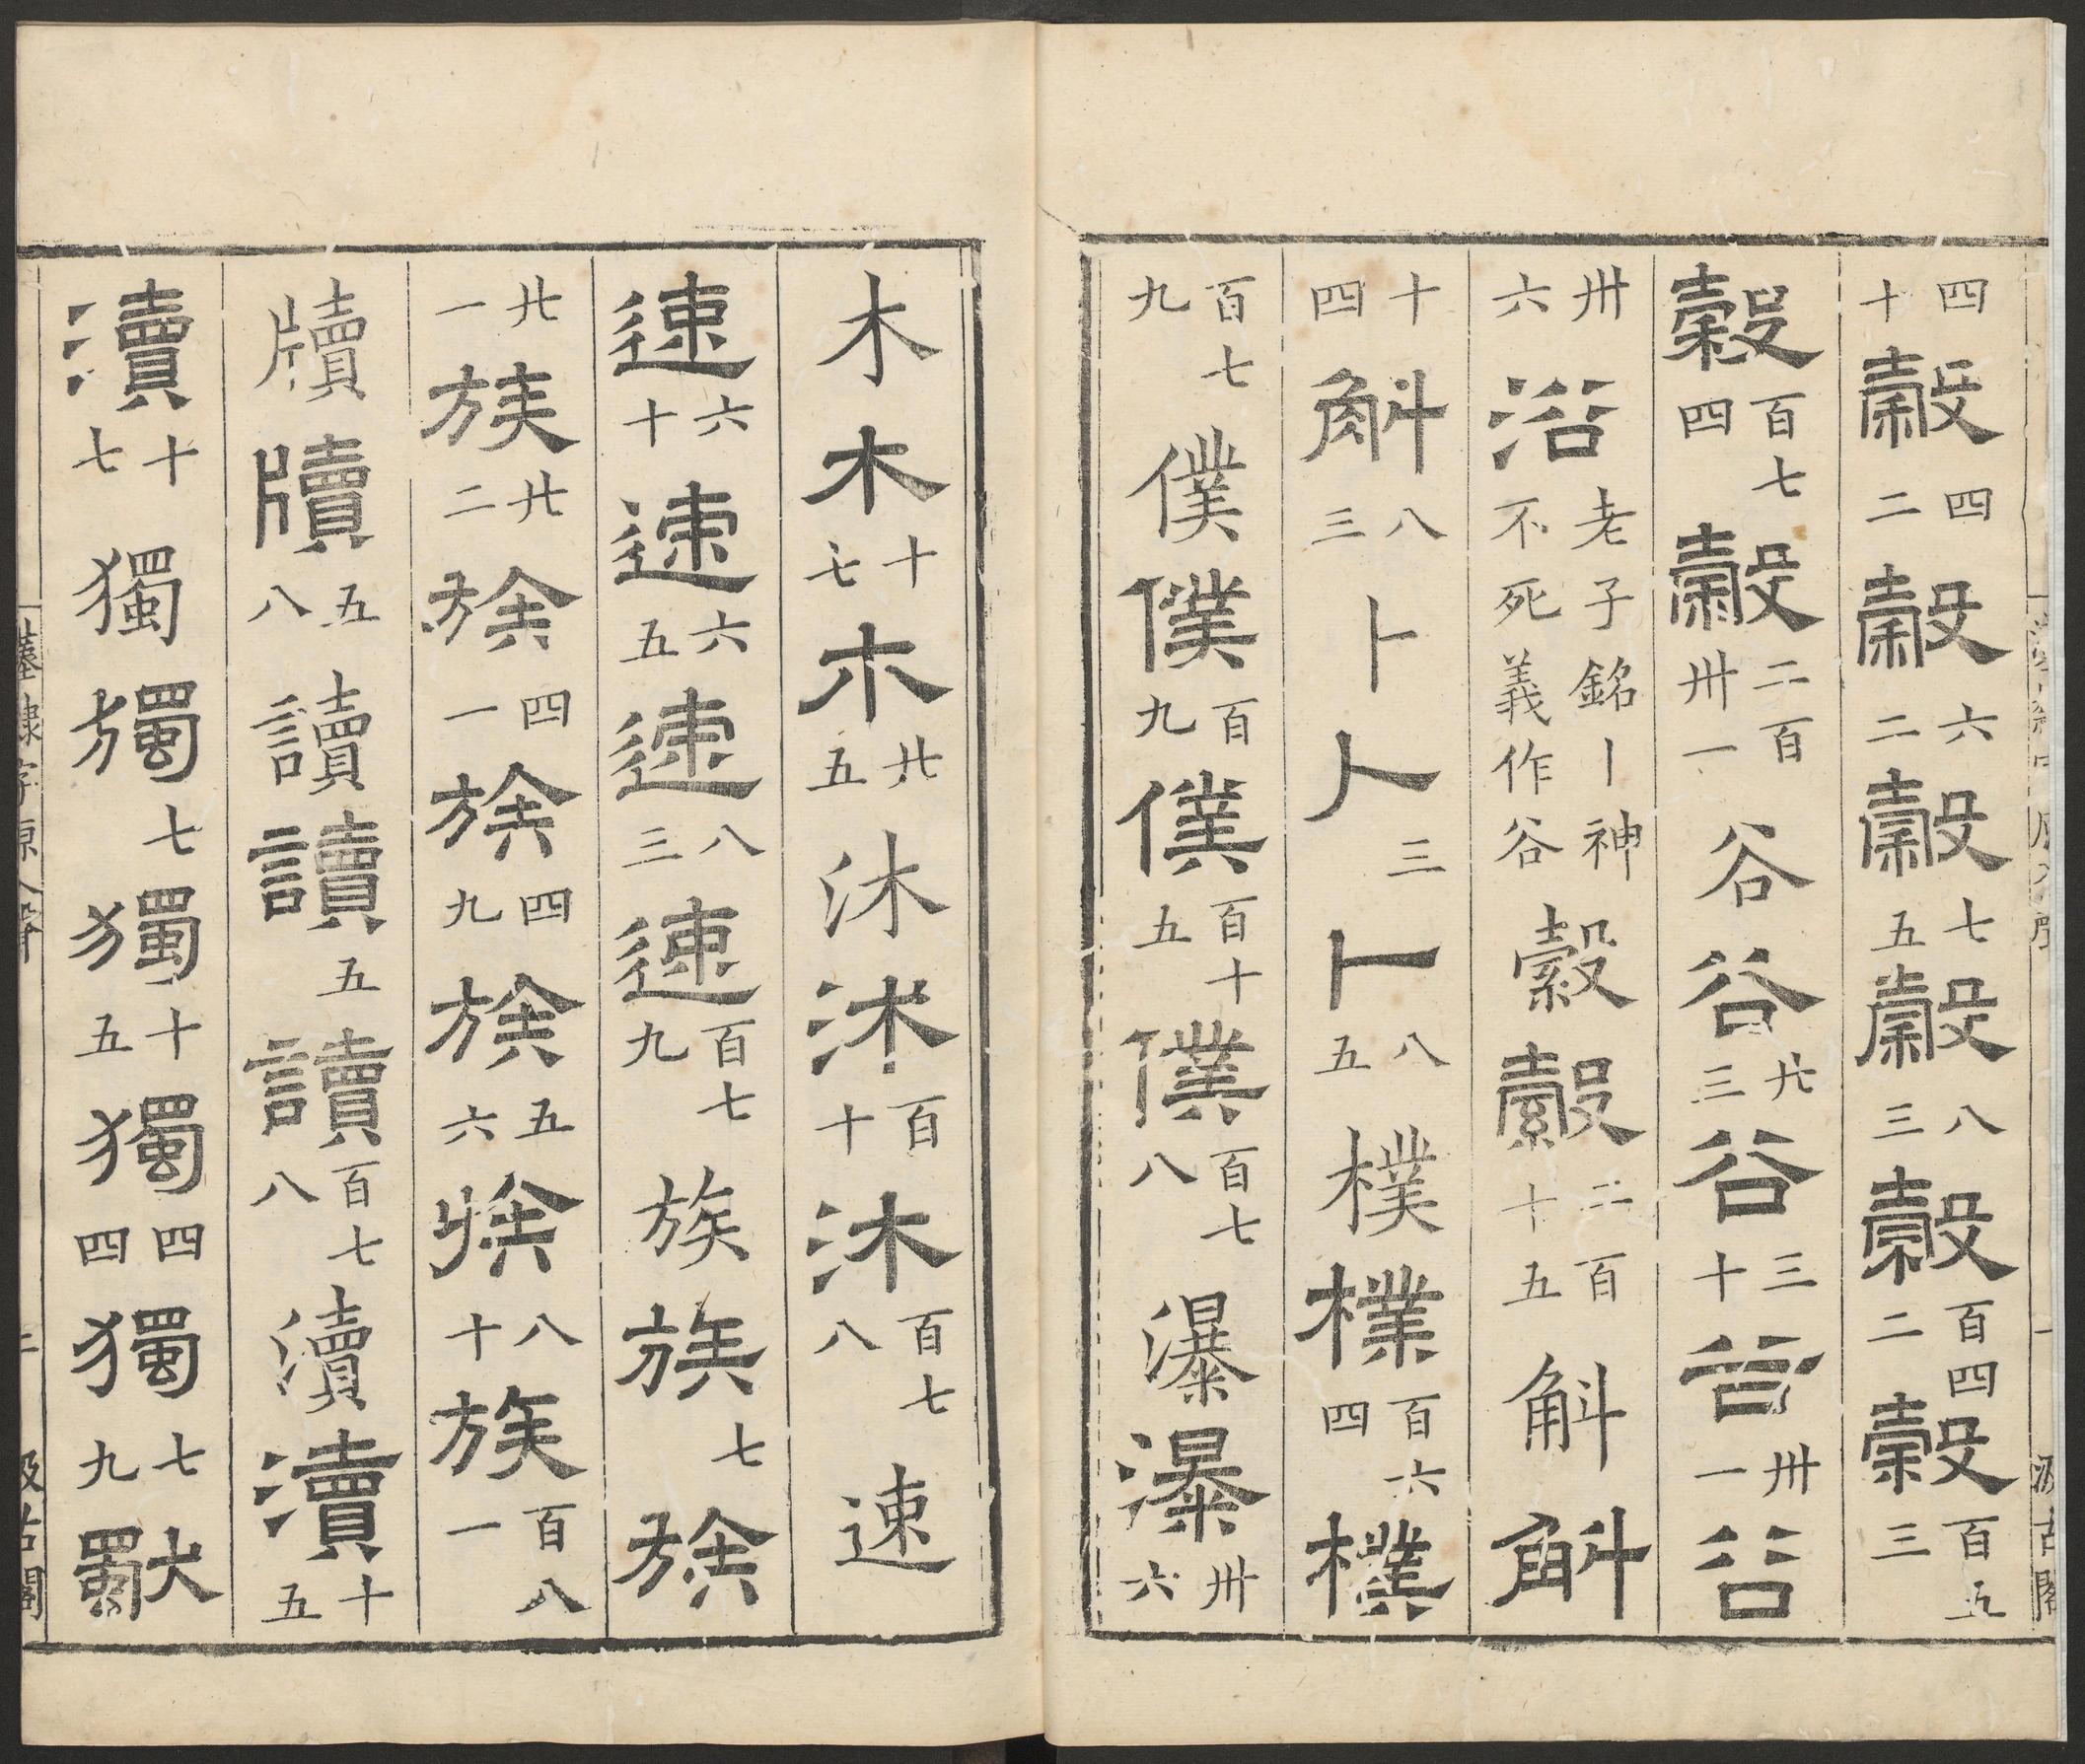 四十穀四二穀六二穀七五穀八三穀百四二穀百五三
穀百七四穀二百卅一谷谷廿三谷三十谷卅一谷
卅六浴老子銘丨神不死義作谷縠縠二百十五斛斛
十四斛八三卜卜三卜八五樸樸百六四樸
百七九僕僕百九僕百十五僕百七八瀑瀑卅六
木木十七木廿五沐沐百十沐百七八速
速六十速六五速八三速百七九族族七族
廿一族廿二族四一族四九族五六族八十族百八一
牘牘五八讀讀五讀百七八瀆瀆十五
瀆十七獨獨七獨十五獨四四獨七九獨
隸字原入聲
二
汲古閣
一
汲古閣